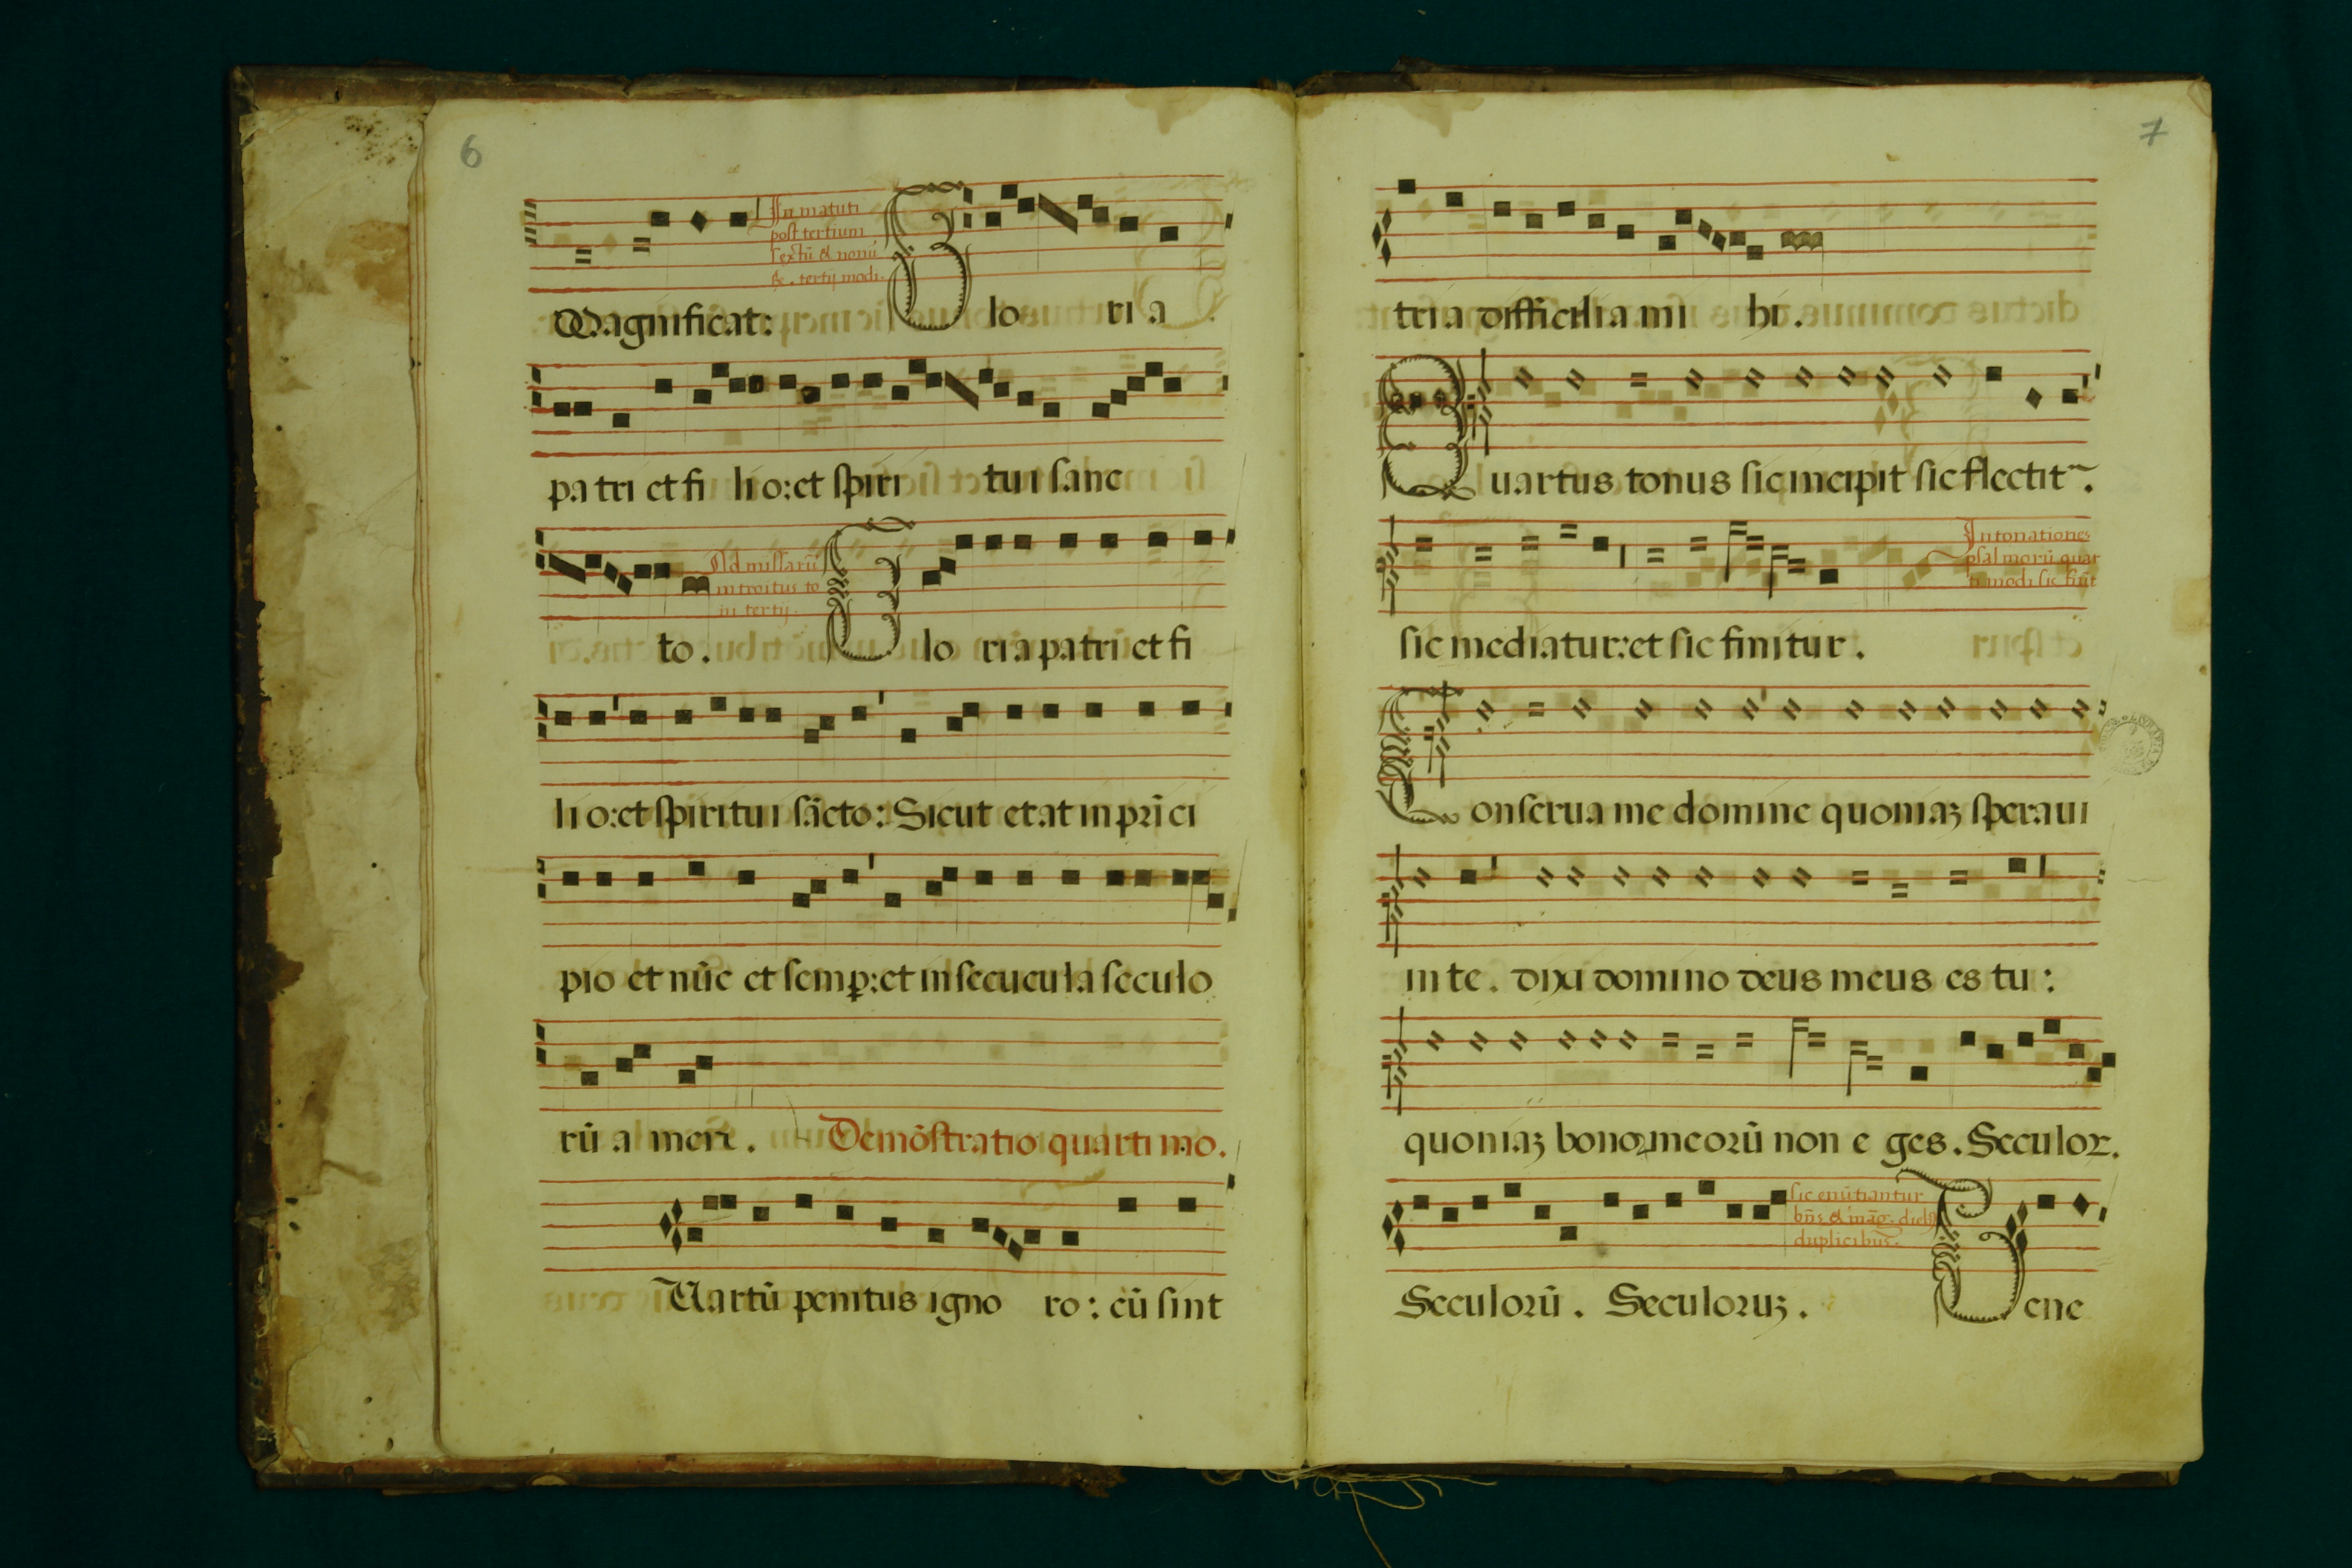 6
In matuti
post tertium
sextū & nonū
&. tertij modi.
Magnificat: Glo ri a
pa tri et fi li o: et spiri tui sanc
Ad missarū
introitus to
ni tertij.
to. Glo ri a pa tri et fi
li o: et spiritui sācto: Sicut erat in prī ci
pio et nūc et semꝑ: et in secucula seculo
rū a men. Demōstratio quarti mo.
Uartū penitus igno ro: cū sint
7
tri a difficilia mi hi.
Quartus tonus sic incipit sic flectit~.
Intonationes
psalmorū quar
ti modi sic siūt
sic mediatur: et sic finitur.
Conserua me domine quoniaꝫ speraui
in te. dixi domino deus meus es tu:
quoniaꝫ bonoꝝ meorū non e ges. Seculor.
sic enūtiantur
bn̄s & māg. dieb9
duplicibus.
Seculorū. Seculoruꝫ. Bene